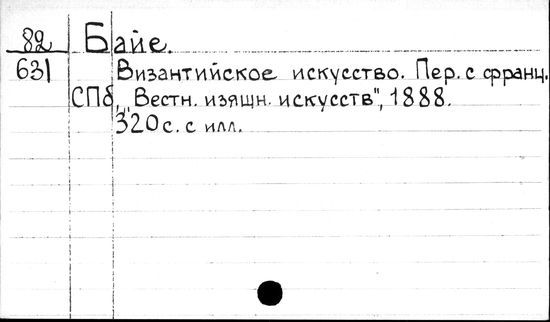 82 Байе.
631 Византийское искусство. Пер. с франц.
СПб, „Вестн. изящн. искусств", 1888.
320 с. с илл.